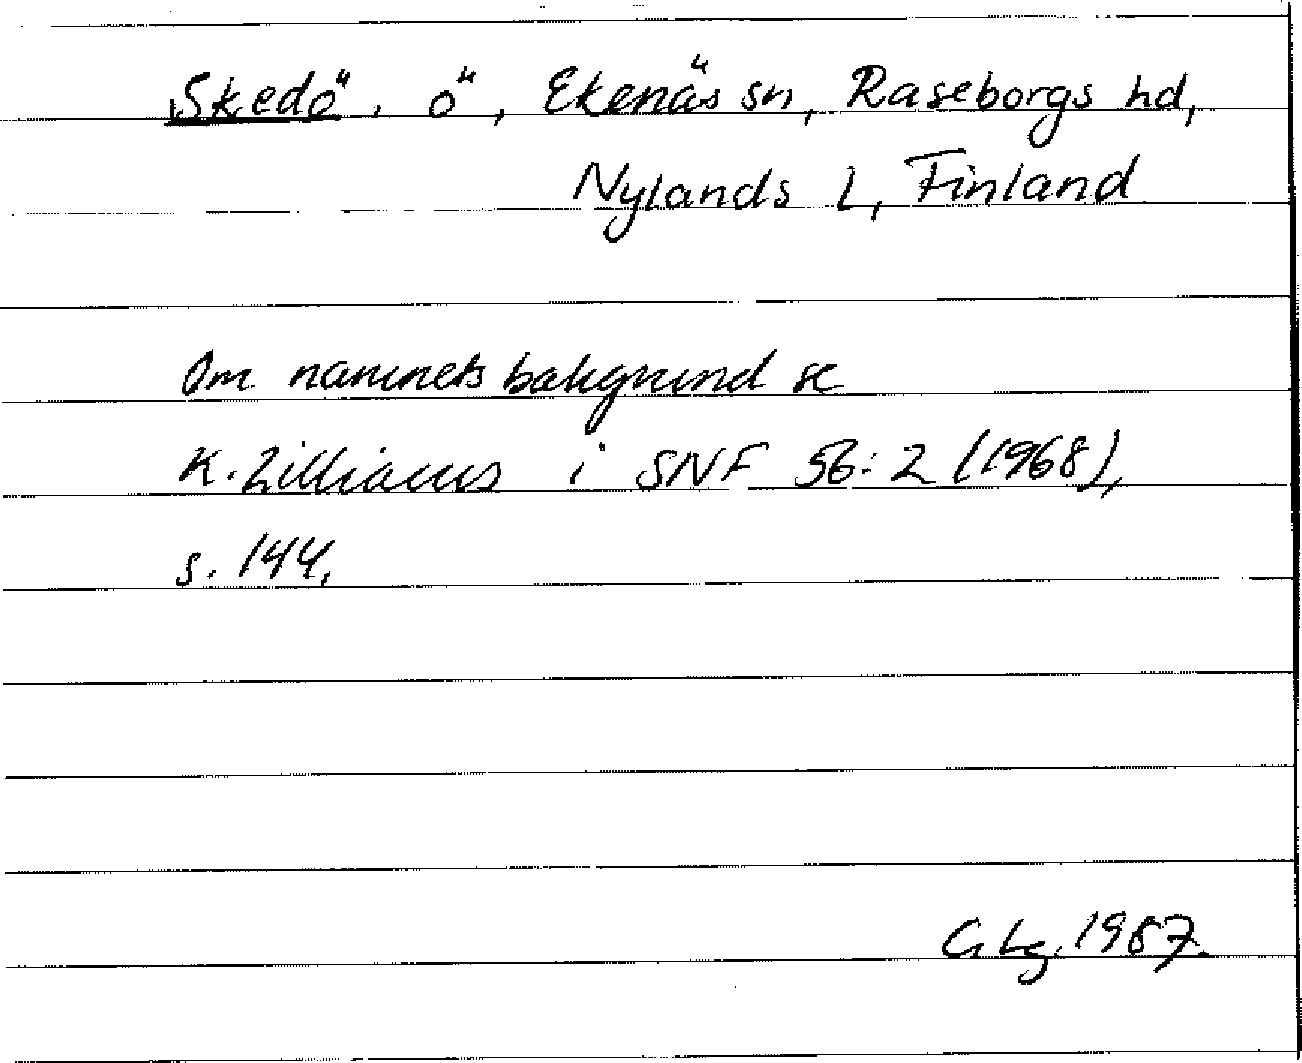 Skedö, ö, Ekenäs sn, Raseborgs hd,
Nylands l, Finland
Om namnets bakgrund se
K. Zilliacus i SNF 56:2 (1968),
s. 144.
G Lg. 1987.